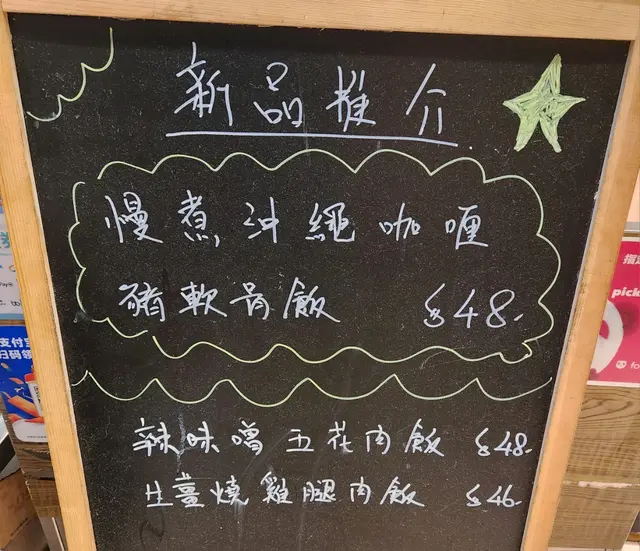 新品推介
慢煮沖繩咖喱
豬軟骨飯 $48.
辣味噌五花肉飯 $48.
生薑燒雞腿肉飯 $46.
支付宝
扫码领
pick